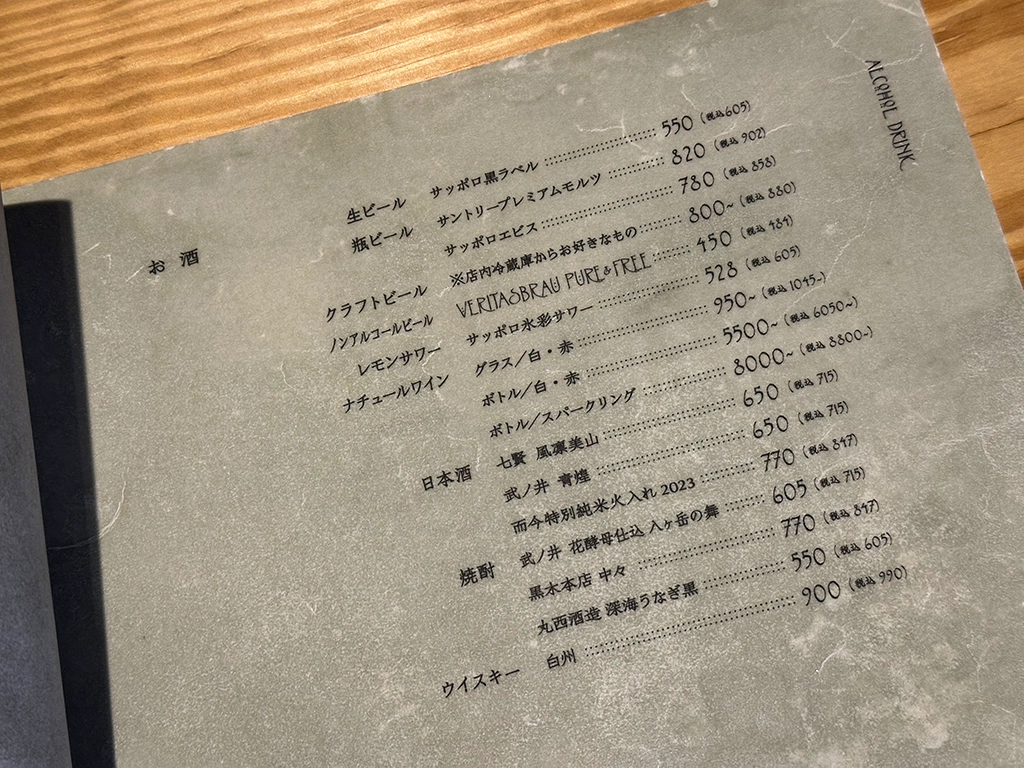 ALCOHOL DRINK
お酒
生ビール サッポロ黒ラベル 550 (税込605)
瓶ビール サントリープレミアムモルツ 820 (税込 902)
サッポロエビス 780 (税込 858)
クラフトビール ※店内冷蔵庫からお好きなもの 800~ (税込 880)
ノンアルコールビール VERITASBRAU PURE&FREE 450 (税込 484)
レモンサワー サッポロ氷彩サワー 528 (税込 605)
ナチュールワイン グラス/白・赤 950~ (税込 1045~)
ボトル/白・赤 5500~ (税込 6050~)
ボトル/スパークリング 8000~ (税込 8800~)
日本酒 七賢 風凛美山 650 (税込 715)
武ノ井 青煌 650 (税込 715)
而今特別純米火入れ 2023 770 (税込 847)
焼酎 武ノ井 花酵母仕込 八ヶ岳の舞 605 (税込 715)
黒木本店 中々 770 (税込 847)
丸西酒造 深海うなぎ黒 550 (税込 605)
ウイスキー 白州 900 (税込 990)